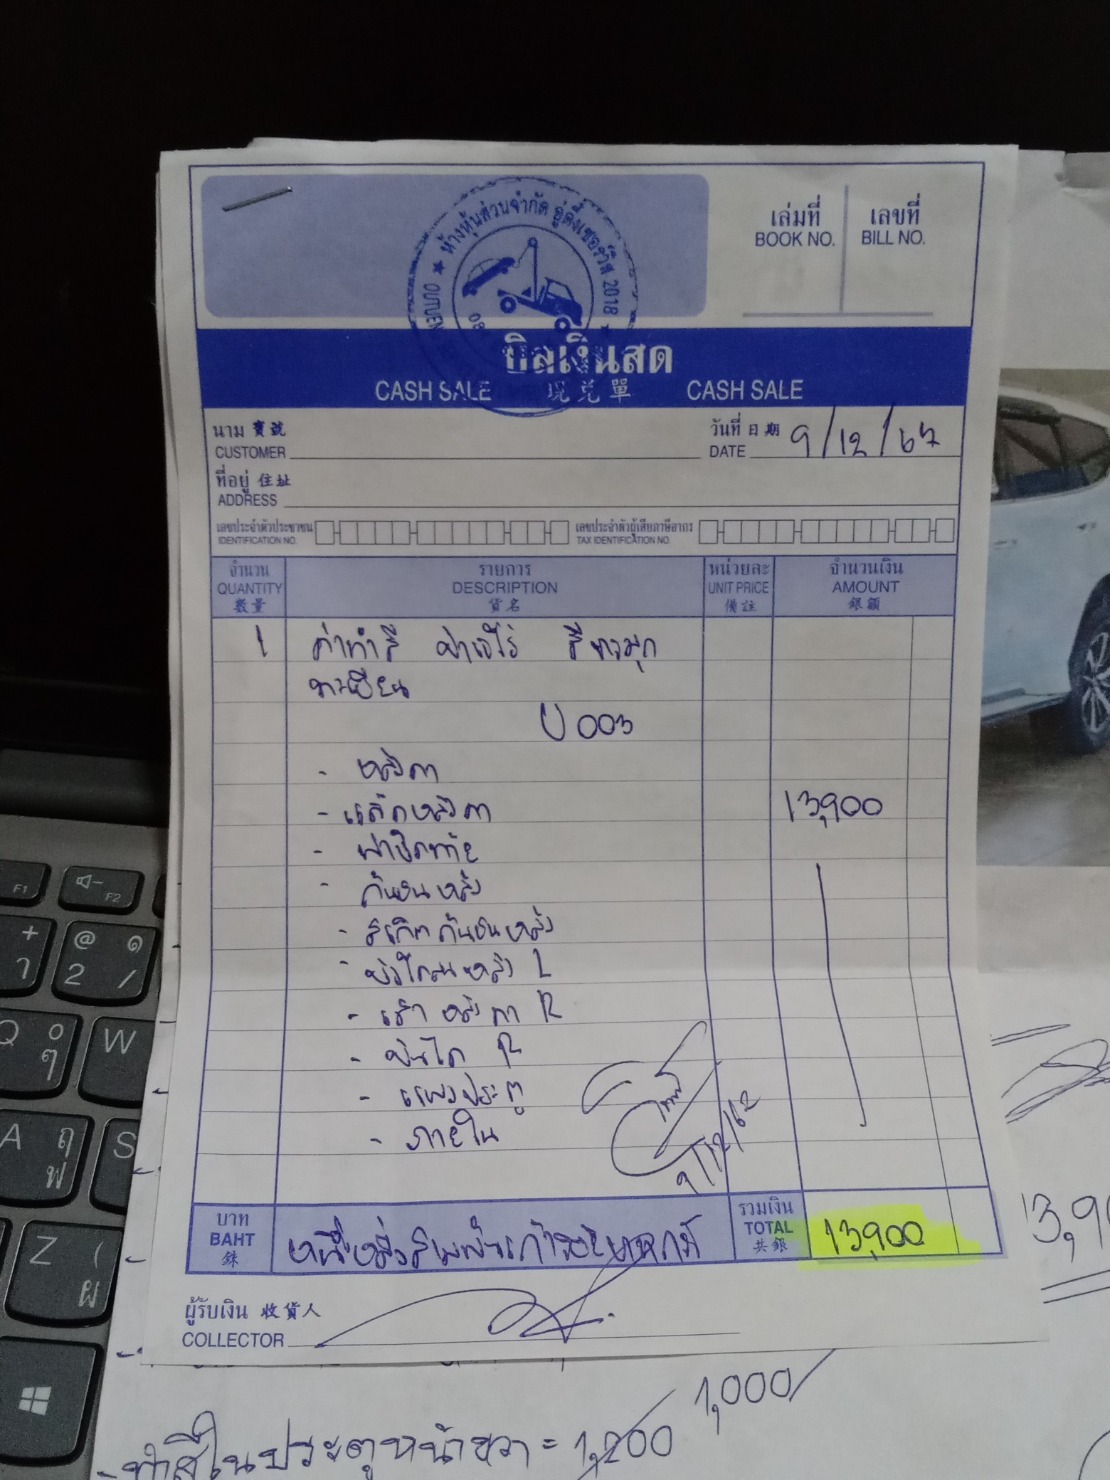 ห้างหุ้นส่วนจำกัด อู่ดิ๊งเซอร์วิส 2018
เล่มที่ เลขที่
BOOK NO. BILL NO.
บิลเงินสด
CASH SALE 現兌單 CASH SALE
นาม 寶號 วันที่ 日期 9/12/62
CUSTOMER DATE
ที่อยู่ 住址
ADDRESS
เลขประจำตัวประชาชน เลขประจำตัวผู้เสียภาษีอากร
IDENTIFICATION NO. TAX IDENTIFICATION NO.
จำนวน รายการ หน่วยละ จำนวนเงิน
QUANTITY DESCRIPTION UNIT PRICE AMOUNT
數量 貨名 備註 銀額
1 ค่าทำสี ปาเจโร่ สีขาวมุก
ทะเบียน
003
- หลังคา
- แร็คหลังคา 13,900
- ฝาปิดท้าย
- กันชนหลัง
- สเกิตกันชนหลัง
- บังโคลนหลัง L
- เสาหลังคา R
- บันได R
- แผงประตู
- ภายใน
9/12/62
บาท รวมเงิน
BAHT หนึ่งหมื่นสามพันเก้าร้อยบาทถ้วน TOTAL 13,900
銖 共銀
ผู้รับเงิน 收貨人
COLLECTOR
1,000
- ทำสีในประตูหน้าขวา = 1,200
F1
F2
+ @ ๑
1 2 /
Q W
A S
ฤ
ฟ
Z (
ผ